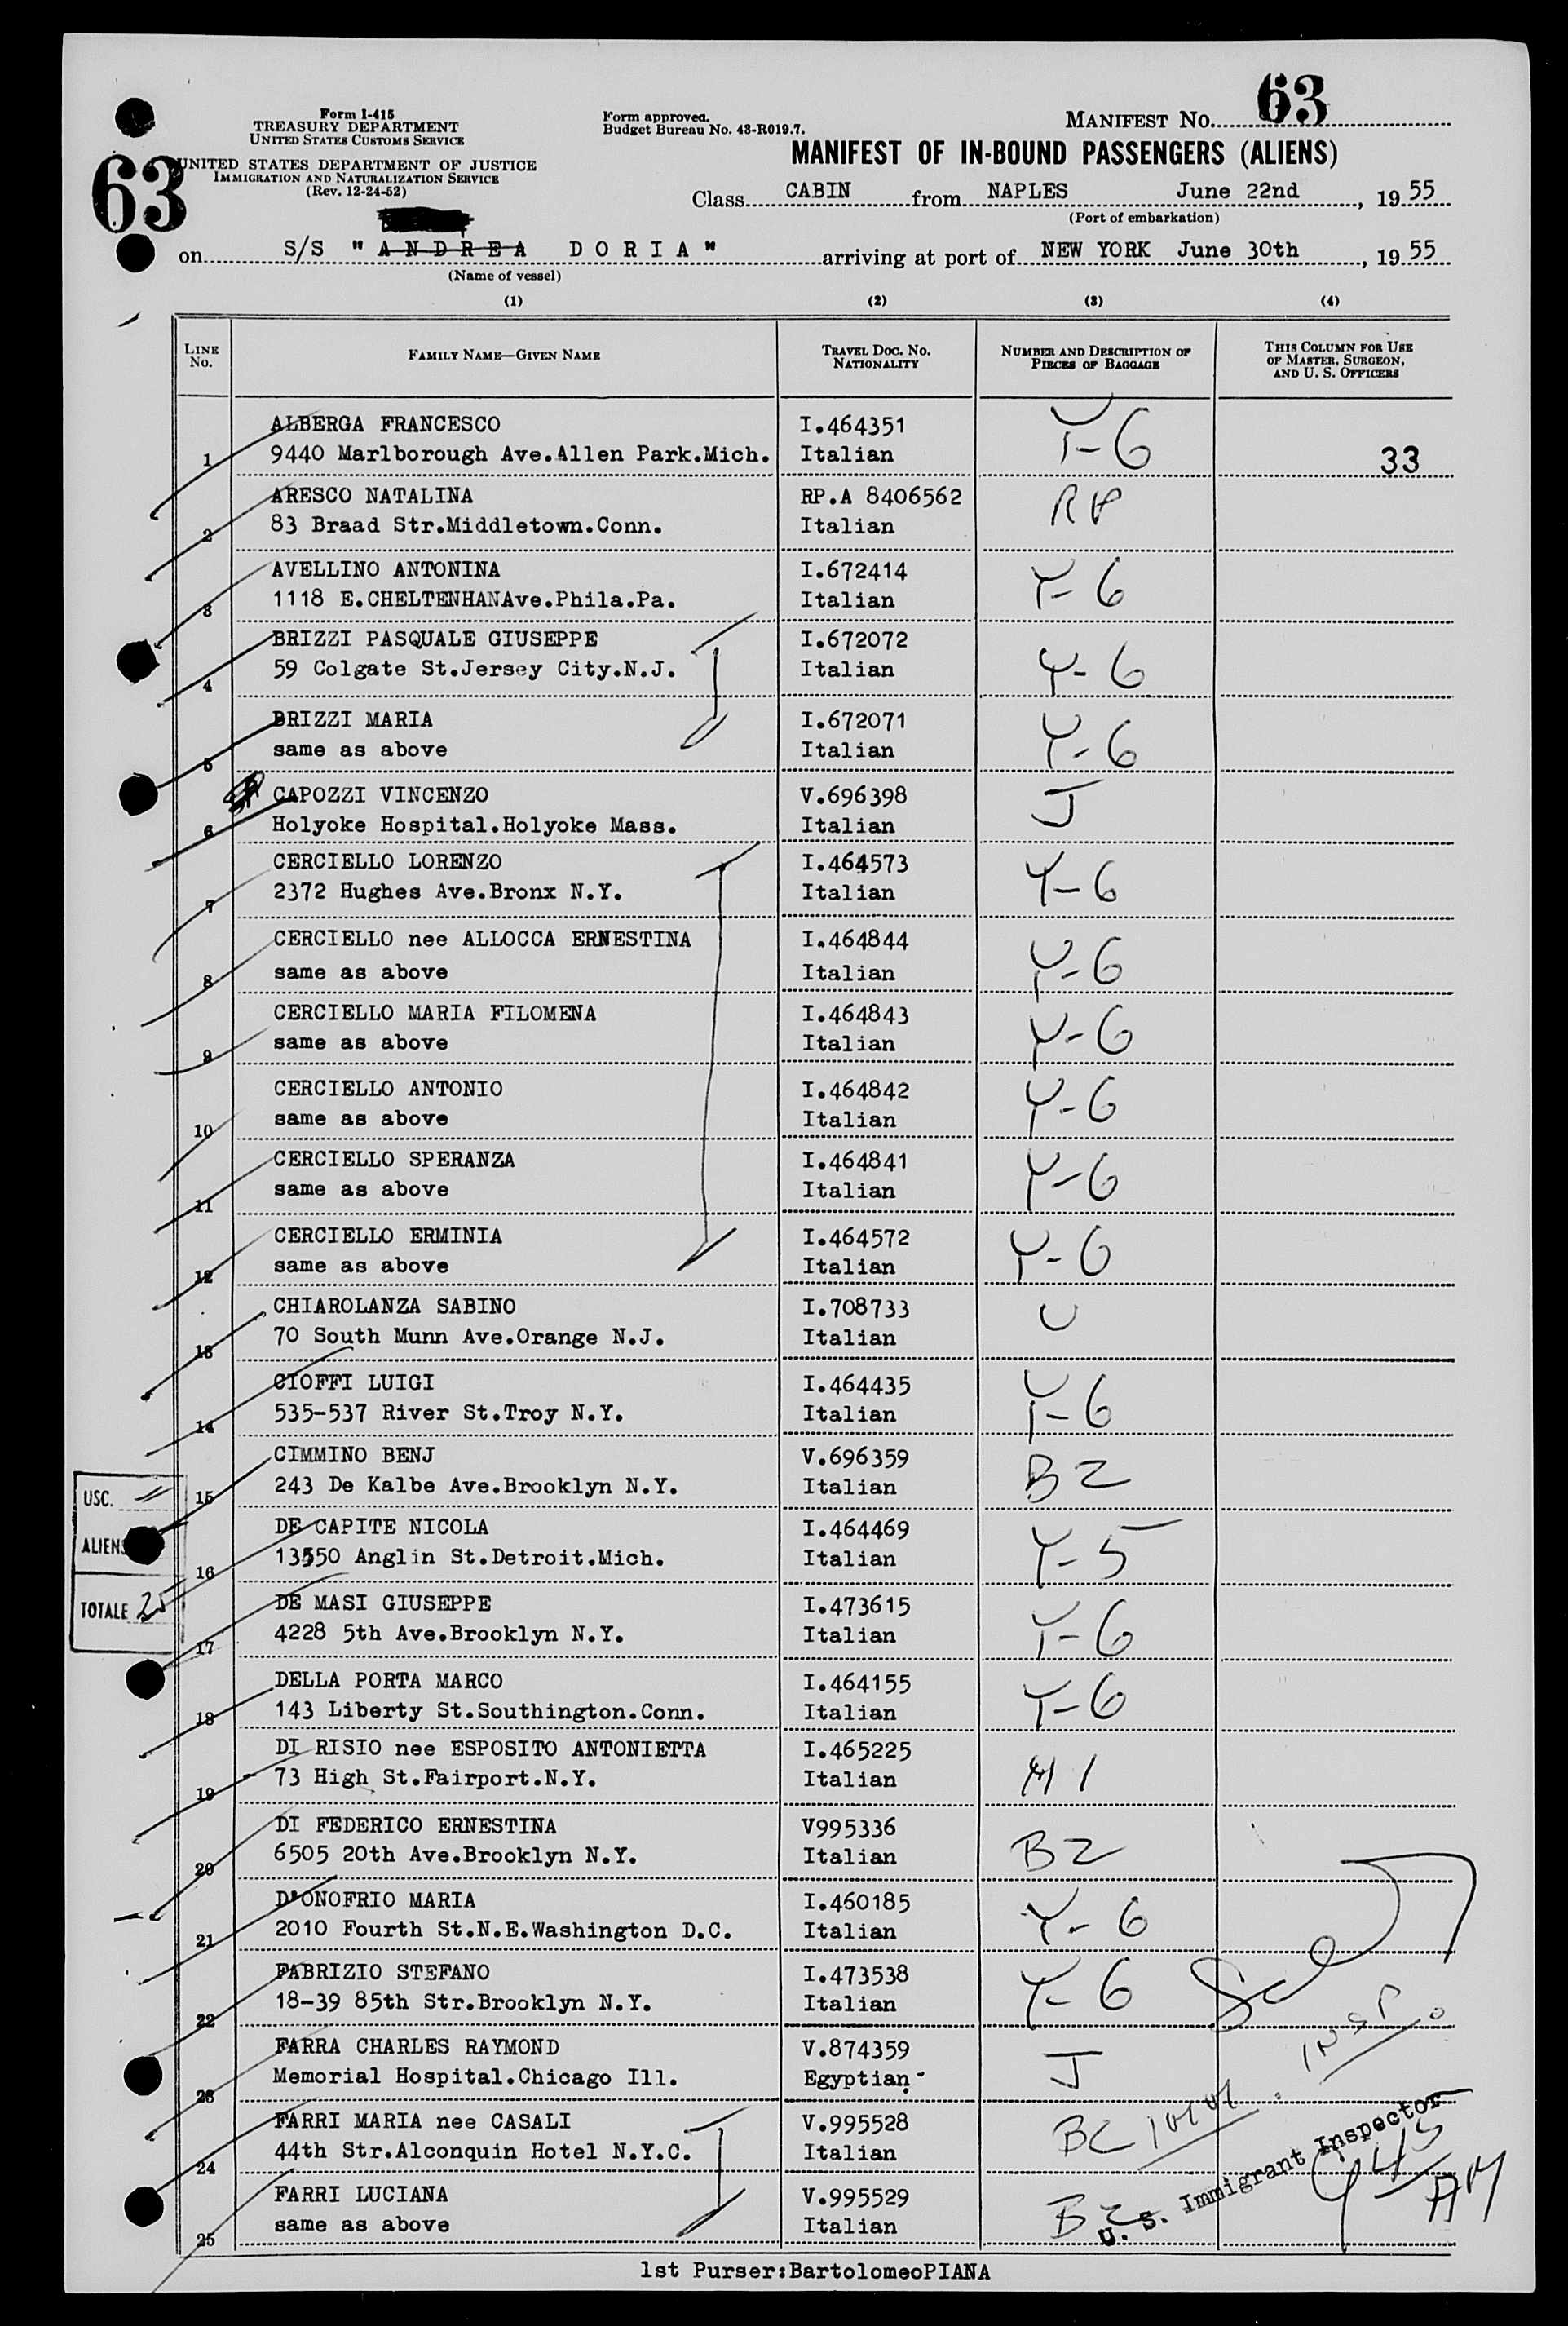 Form I-415
TREASURY DEPARTMENT
UNITED STATES CUSTOMS SERVICE
UNITED STATES DEPARTMENT OF JUSTICE
IMMIGRATION AND NATURALIZATION SERVICE
(Rev. 12-24-52)
63
Form approved.
Budget Bureau No. 43-R019.7.
MANIFEST NO. 63
MANIFEST OF IN-BOUND PASSENGERS (ALIENS)
Class CABIN from NAPLES June 22nd, 1955
(Port of embarkation)
on S/S "ANDREA DORIA" arriving at port of NEW YORK June 30th, 1955
(Name of vessel)
(1) (2) (3) (4)
LINE NO. FAMILY NAME—GIVEN NAME TRAVEL DOC. NO. NATIONALITY NUMBER AND DESCRIPTION OF PIECES OF BAGGAGE THIS COLUMN FOR USE OF MASTER, SURGEON, AND U. S. OFFICERS
ALBERGA FRANCESCO I.464351 Y-6
1 9440 Marlborough Ave.Allen Park.Mich. Italian 33
ARESCO NATALINA RP.A 8406562 RP
2 83 Braad Str.Middletown.Conn. Italian
AVELLINO ANTONINA I.672414 Y-6
3 1118 E.CHELTENHANAve.Phila.Pa. Italian
BRIZZI PASQUALE GIUSEPPE I.672072 Y-6
4 59 Colgate St.Jersey City.N.J. Italian
BRIZZI MARIA I.672071 Y-6
5 same as above Italian
CAPOZZI VINCENZO V.696398 J
6 Holyoke Hospital.Holyoke Mass. Italian
CERCIELLO LORENZO I.464573 Y-6
7 2372 Hughes Ave.Bronx N.Y. Italian
CERCIELLO nee ALLOCCA ERNESTINA I.464844 Y-6
8 same as above Italian
CERCIELLO MARIA FILOMENA I.464843 Y-6
9 same as above Italian
CERCIELLO ANTONIO I.464842 Y-6
10 same as above Italian
CERCIELLO SPERANZA I.464841 Y-6
11 same as above Italian
CERCIELLO ERMINIA I.464572 Y-6
12 same as above Italian
CHIAROLANZA SABINO I.708733 U
13 70 South Munn Ave.Orange N.J. Italian
CIOFFI LUIGI I.464435 Y-6
14 535-537 River St.Troy N.Y. Italian
CIMMINO BENJ V.696359 B2
15 243 De Kalbe Ave.Brooklyn N.Y. Italian
USC.
ALIENS
TOTALE 25
DE CAPITE NICOLA I.464469 Y-5
16 13550 Anglin St.Detroit.Mich. Italian
DE MASI GIUSEPPE I.473615 Y-6
17 4228 5th Ave.Brooklyn N.Y. Italian
DELLA PORTA MARCO I.464155 Y-6
18 143 Liberty St.Southington.Conn. Italian
DI RISIO nee ESPOSITO ANTONIETTA I.465225 M 1
19 73 High St.Fairport.N.Y. Italian
DI FEDERICO ERNESTINA V995336 B2
20 6505 20th Ave.Brooklyn N.Y. Italian
D'ONOFRIO MARIA I.460185 Y-6
21 2010 Fourth St.N.E.Washington D.C. Italian
FABRIZIO STEFANO I.473538 Y-6
22 18-39 85th Str.Brooklyn N.Y. Italian
INSP.
FARRA CHARLES RAYMOND V.874359 J
23 Memorial Hospital.Chicago Ill. Egyptian
FARRI MARIA nee CASALI V.995528 B2
24 44th Str.Alconquin Hotel N.Y.C. Italian
U. S. Immigrant Inspector
945 AM
FARRI LUCIANA V.995529 B2
25 same as above Italian
1st Purser:BartolomeoPIANA